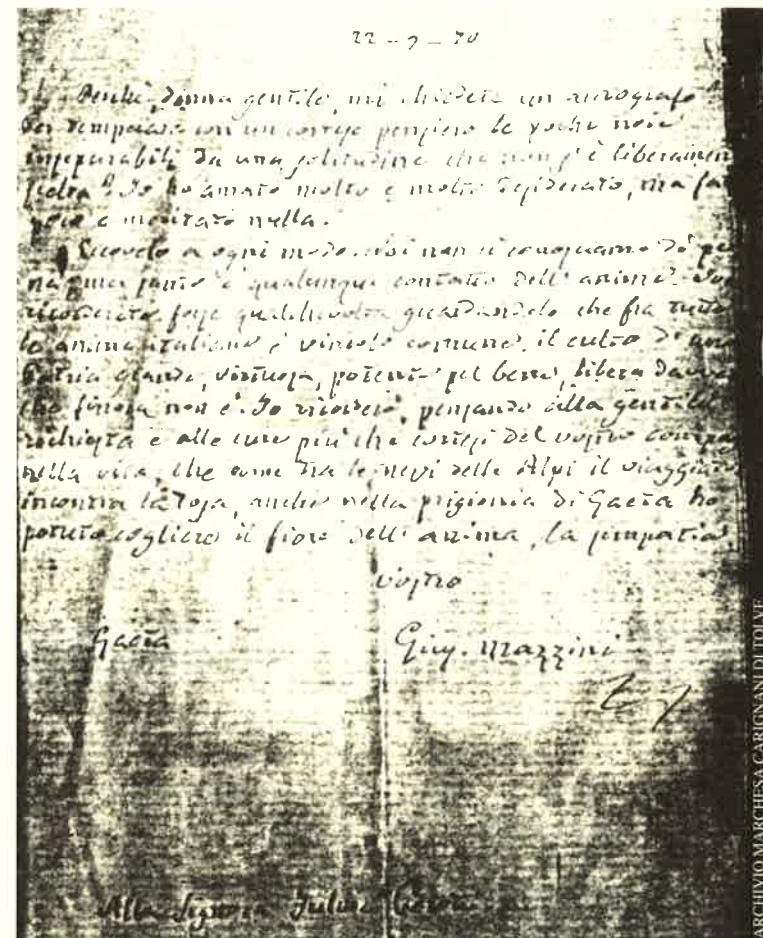 22 – 9 – 70
Perchè, donna gentile, mi chiedete un autografo
per temperare con un cortese pensiero le poche noie
inseparabili da una solitudine che non s'è liberamen
scelta? Io ho amato molto e molto desiderato, ma fat
poco e meritato nulla.
Eccovelo a ogni modo. Noi non ci conosciamo di per
na, ma santo è qualunque contatto dell' anime. Voi
ricorderete forse qualche volta guardandolo che fra tutte
le anime italiane è vincolo comune, il culto d'una
Patria grande, virtuosa, potente pel bene, libera davve
che finora non è. Io ricorderò, pensando alla gentile
richiesta e alle cure più che cortesi del vostro compa
nella vita, che come tra le nevi delle Alpi il viaggiato
incontra la rosa, anche nella prigionia di Gaeta ho
potuto cogliere il fiore dell' anima, la simpatia.
vostro
Gaeta Gius. Mazzini
Alla Signora
ARCHIVIO MARCHESA CARIGNANI DI TOLVE